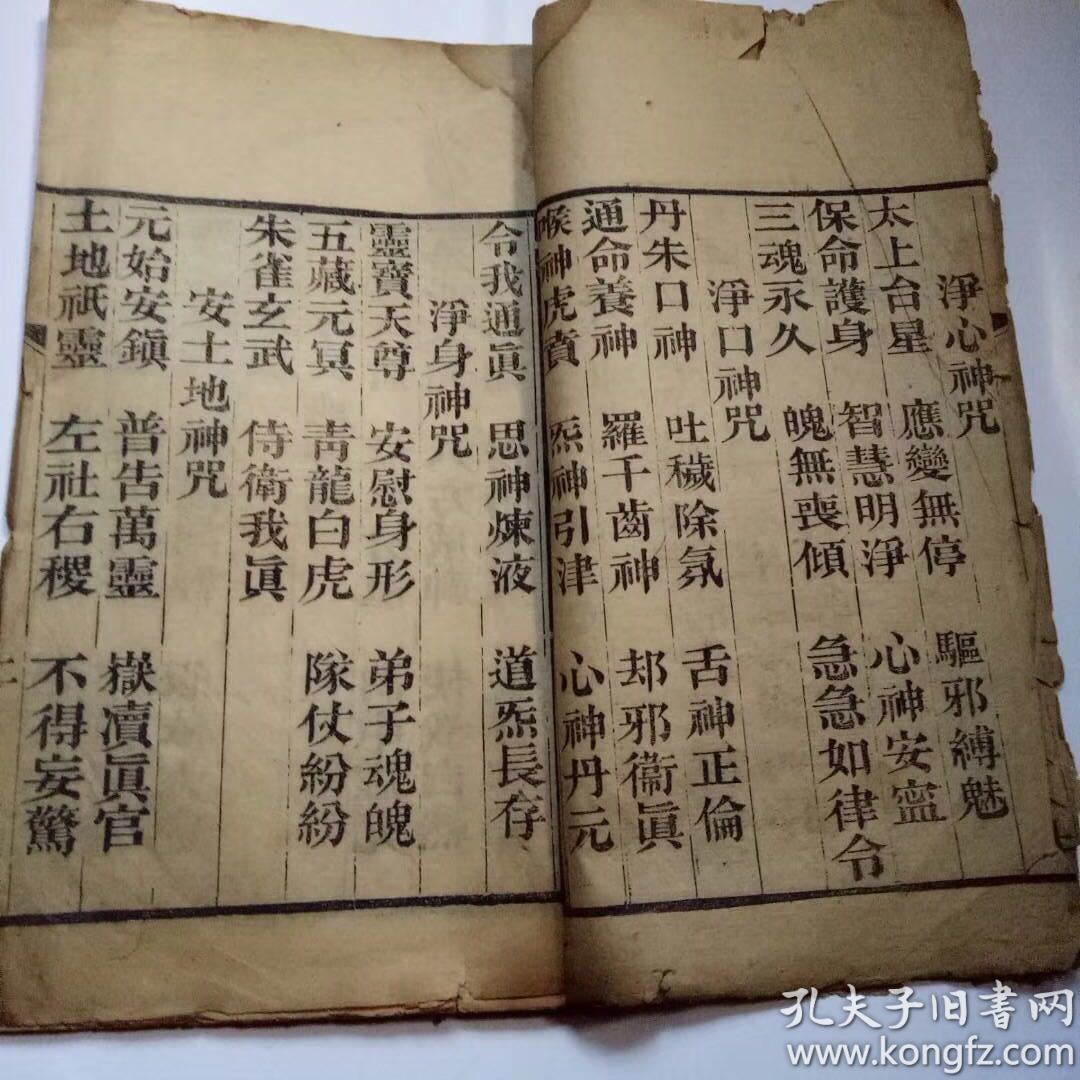 淨心神咒
太上台星 應變無停 驅邪縛魅
保命護身 智慧明淨 心神安寍
三魂永久 魄無喪傾 急急如律令
淨口神咒
丹朱口神 吐穢除氛 舌神正倫
通命養神 羅千齒神 却邪衞眞
喉神虎賁 炁神引津 心神丹元
令我通眞 思神煉液 道炁長存
淨身神咒
靈寶天尊 安慰身形 弟子魂魄
五藏元冥 靑龍白虎 隊仗紛紛
朱雀玄武 侍衛我眞
安土地神咒
元始安鎭 普告萬靈 嶽凟眞官
土地祇靈 左社右稷 不得妄驚
孔夫子旧书网
www.kongfz.com